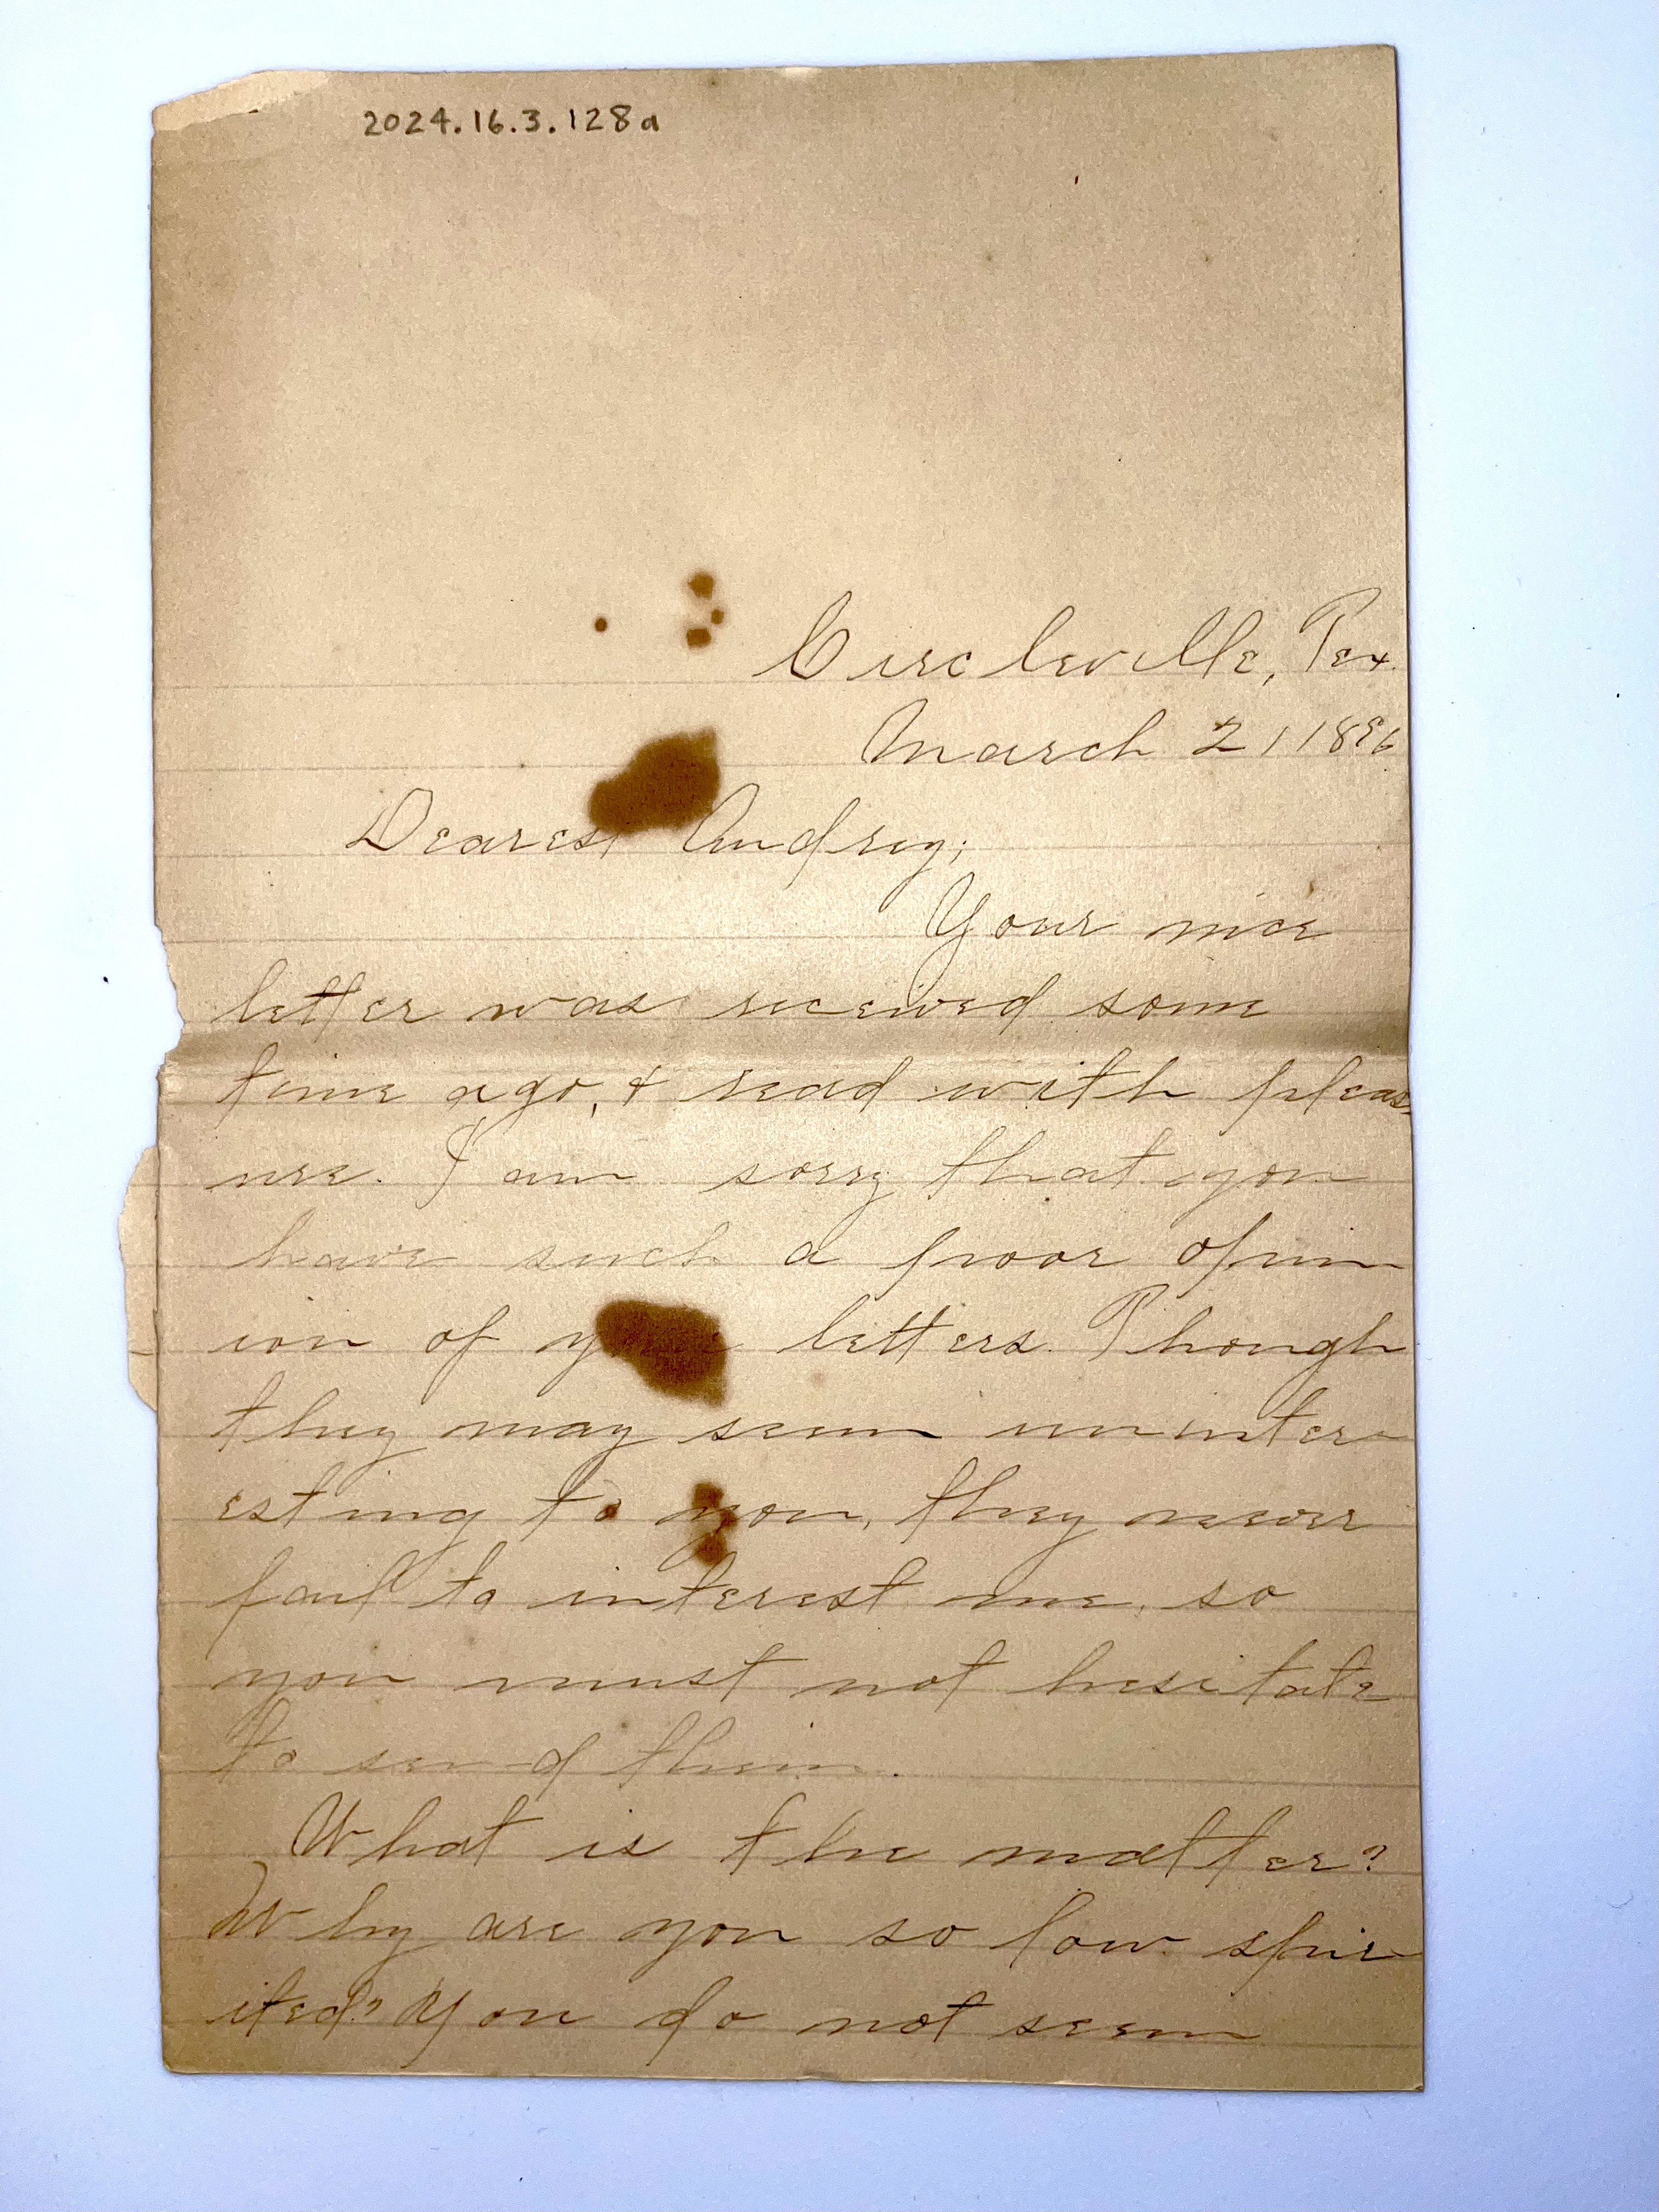 2024.16.3.128a
Circleville, Tex.
March 21 1896
Dearest Audrey;
Your nice
letter was received some
time ago, & read with pleas-
ure. I am sorry that you
have such a poor opin-
ion of your letters. Though
they may seem uninter-
esting to you, they never
fail to interest me, so
you must not hesitate
to send them.
What is the matter?
Why are you so low spir-
ited? You do not seem